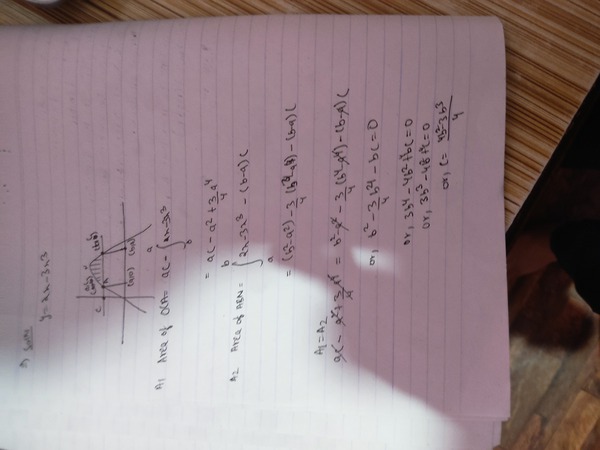 Soln
y = 2x - 3x³
C
(a,0)
(b,0)
A1 Area of OCA = ac - ∫ 2x - 3x³
a
0
= ac - a² + 3a⁴/4
A2 Area of ABN = ∫ 2x - 3x³ - (b-a) c
b
a
= (b² - a²) - 3/4 (b⁴ - a⁴) - (b-a) c
A1 = A2
ac - a² + 3a⁴/4 = b² - a² - 3/4 (b⁴ - a⁴) - (b-a) c
or, b² - 3b⁴/4 - bc = 0
or, 3b⁴ - 4b² + bc = 0
or, 3b³ - 4b + c = 0
or, c = 4b - 3b³/4